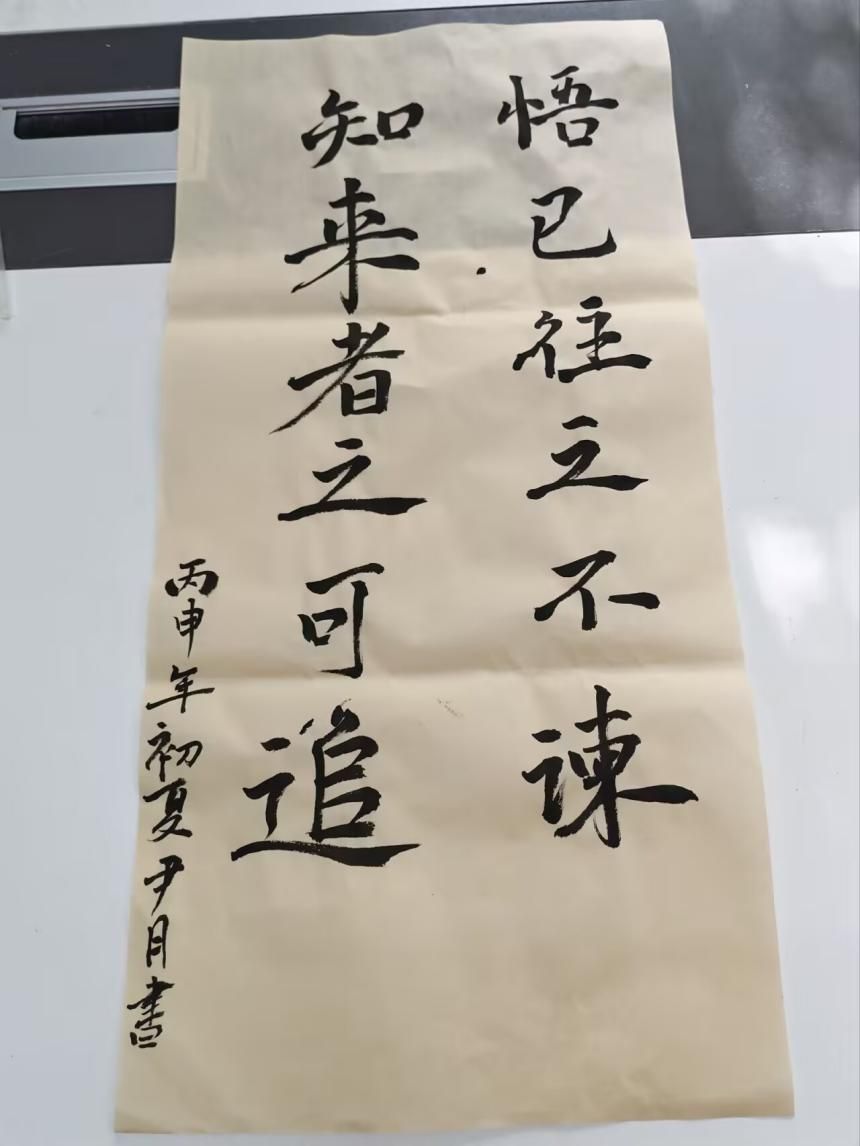 悟已往之不谏
知来者之可追
丙申年初夏尹月書